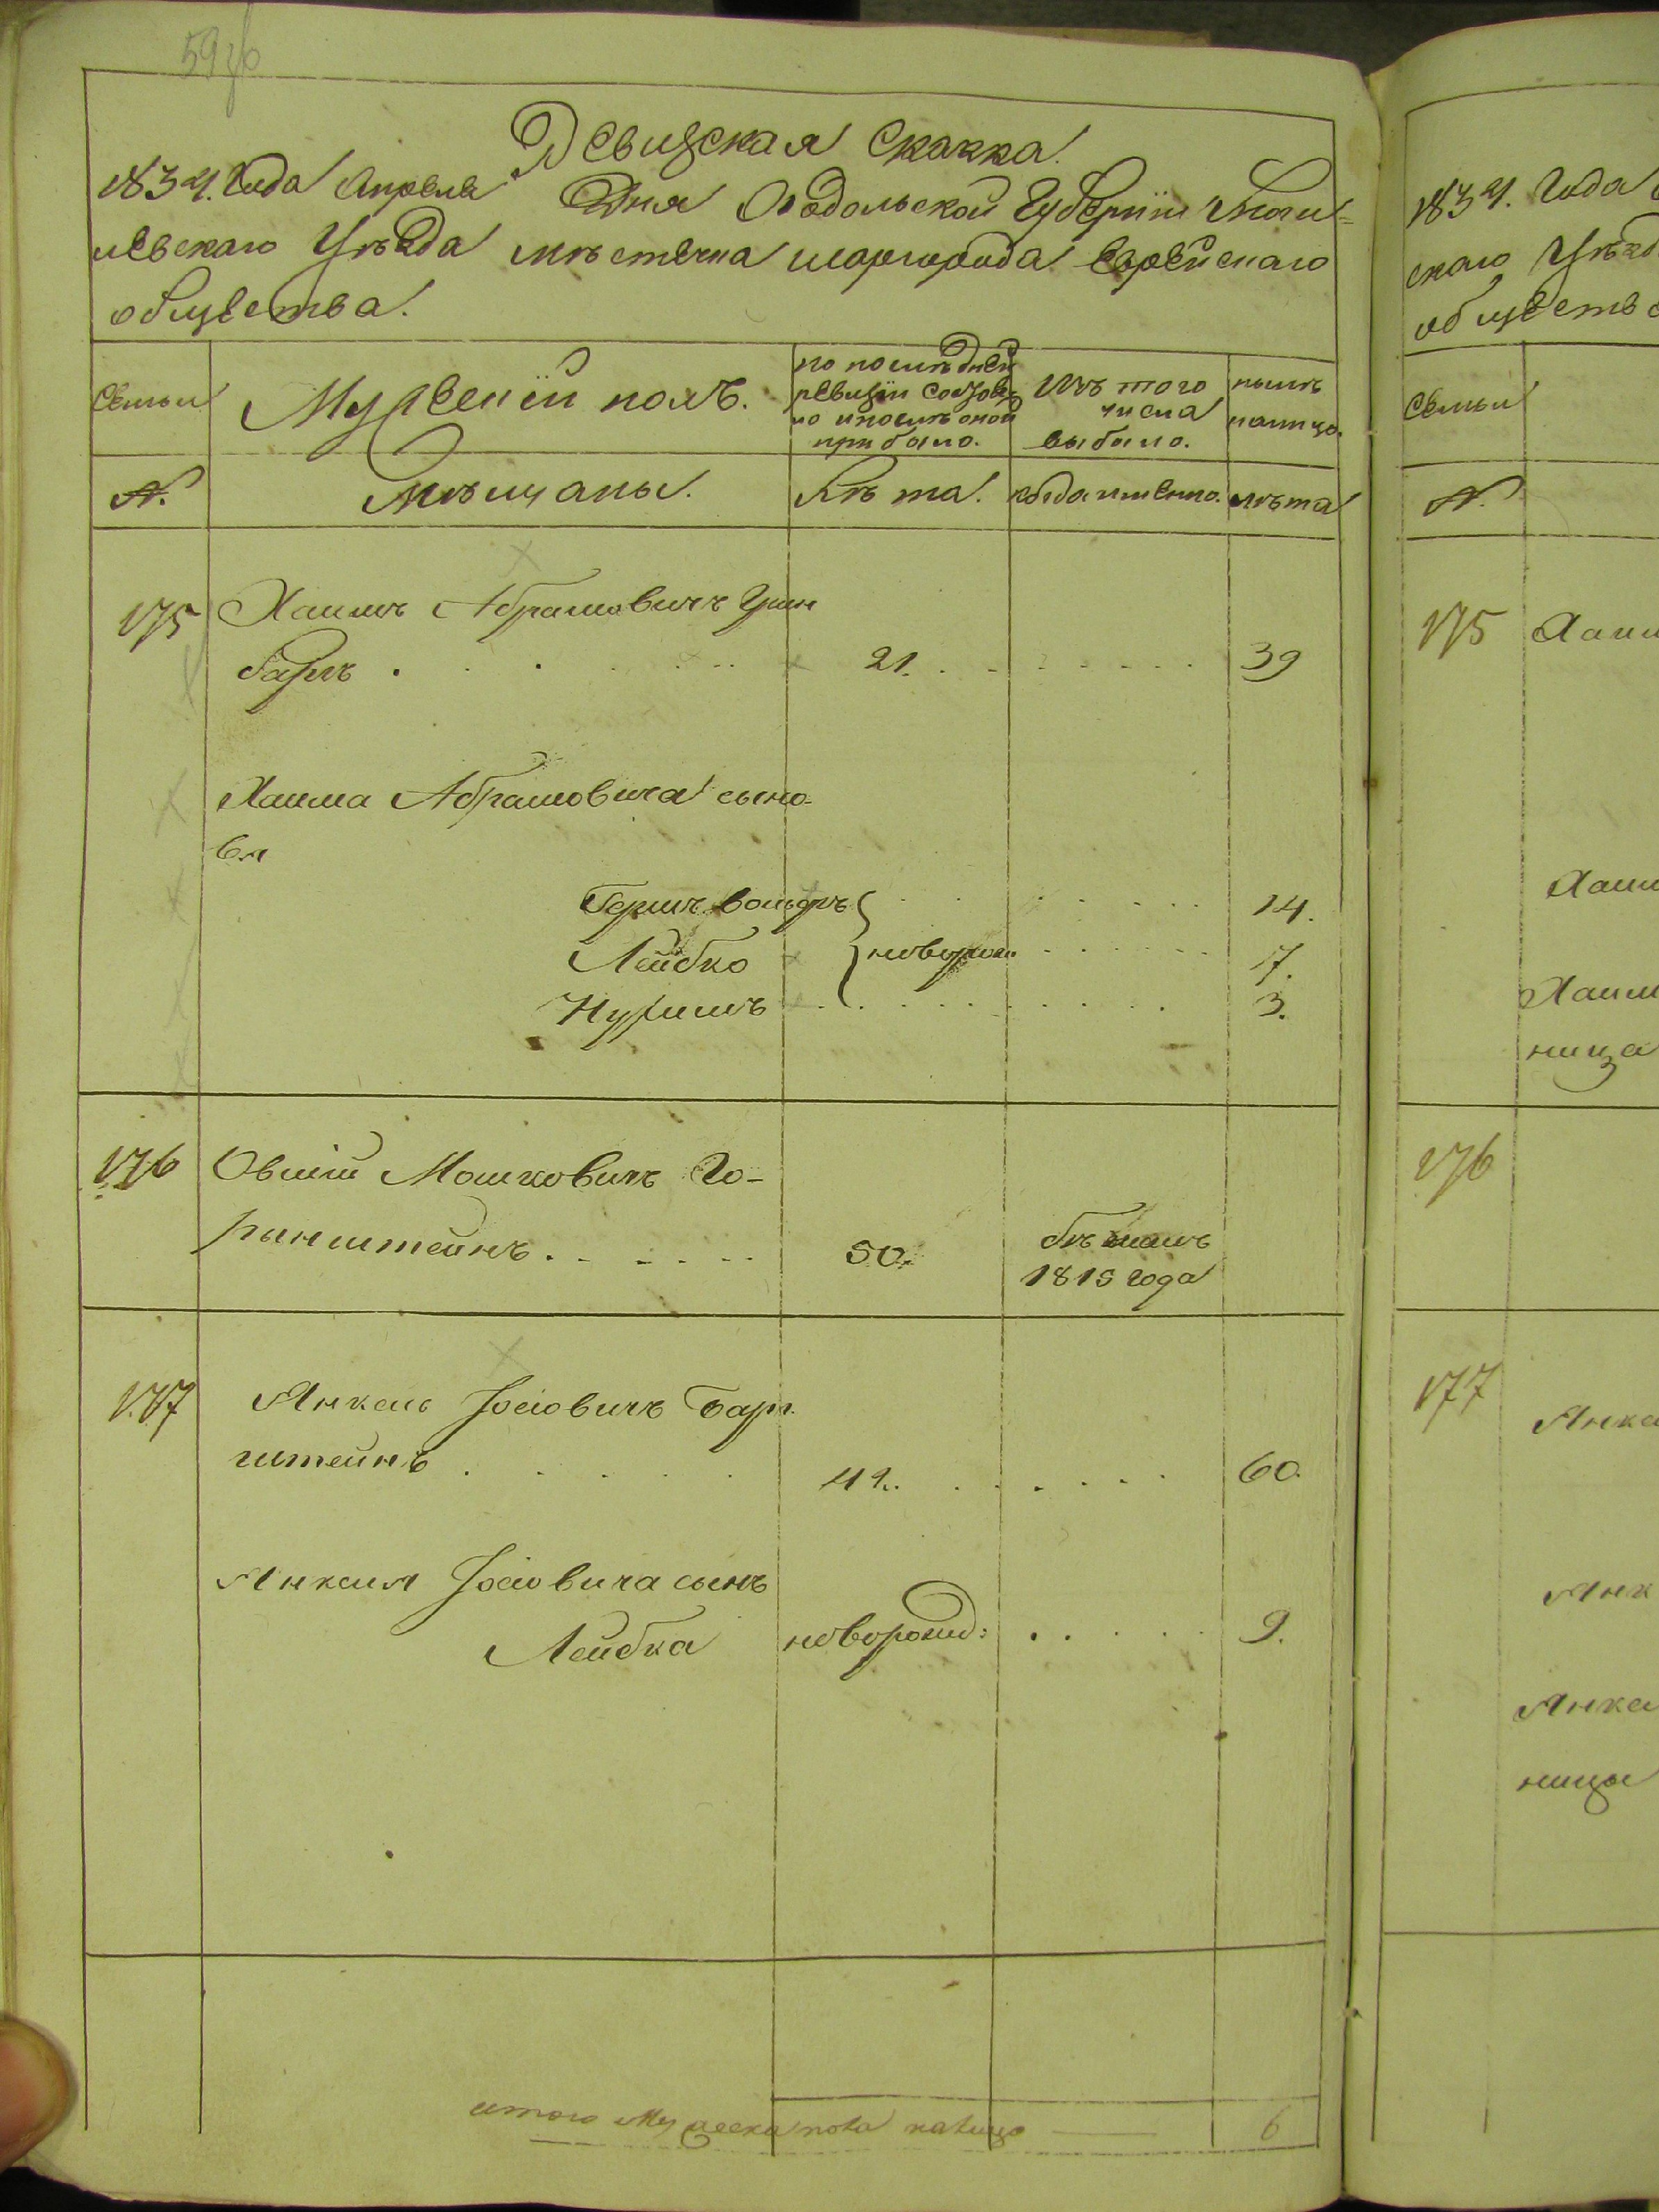 59об
Ревизская Сказка.
1834. Года Апреля Дня Подольской Губернiи Моги=
левскаго Уѣзда мѣстечка шаргорода Еврейскаго
общества.
Семьи
Мужескiй полъ.
по послѣдней
ревизiи состоя
ло и послѣ оной
прибыло.
Изъ того
числа
выбыло.
нынѣ
на лицо.
N.
Мѣщаны.
Лѣта.
когда именно.
лѣта
175
Хаимъ Абрамовичъ Грин
баръ
21.
39
Хаима Абрамовича сыно-
вя
Гершъ Вольфъ
14.
Лейбко
новорож
7.
Нухимъ
3.
176
Овшiй Мошковичъ Го-
ринштейнъ
50.
1815 года
177
Янкель Iосiовичъ Барг
штейнъ
42.
60.
Янкеля Iосiовича сынъ
Лейбка
новорожд:
9.
итого Мужеска пола налицо
6
1834. Года
скаго Уѣзд
обществ
Семьи
N.
175
Хаим
Хаим
Хаим
ница
176
177
Янке
Янк
Янке
ницы